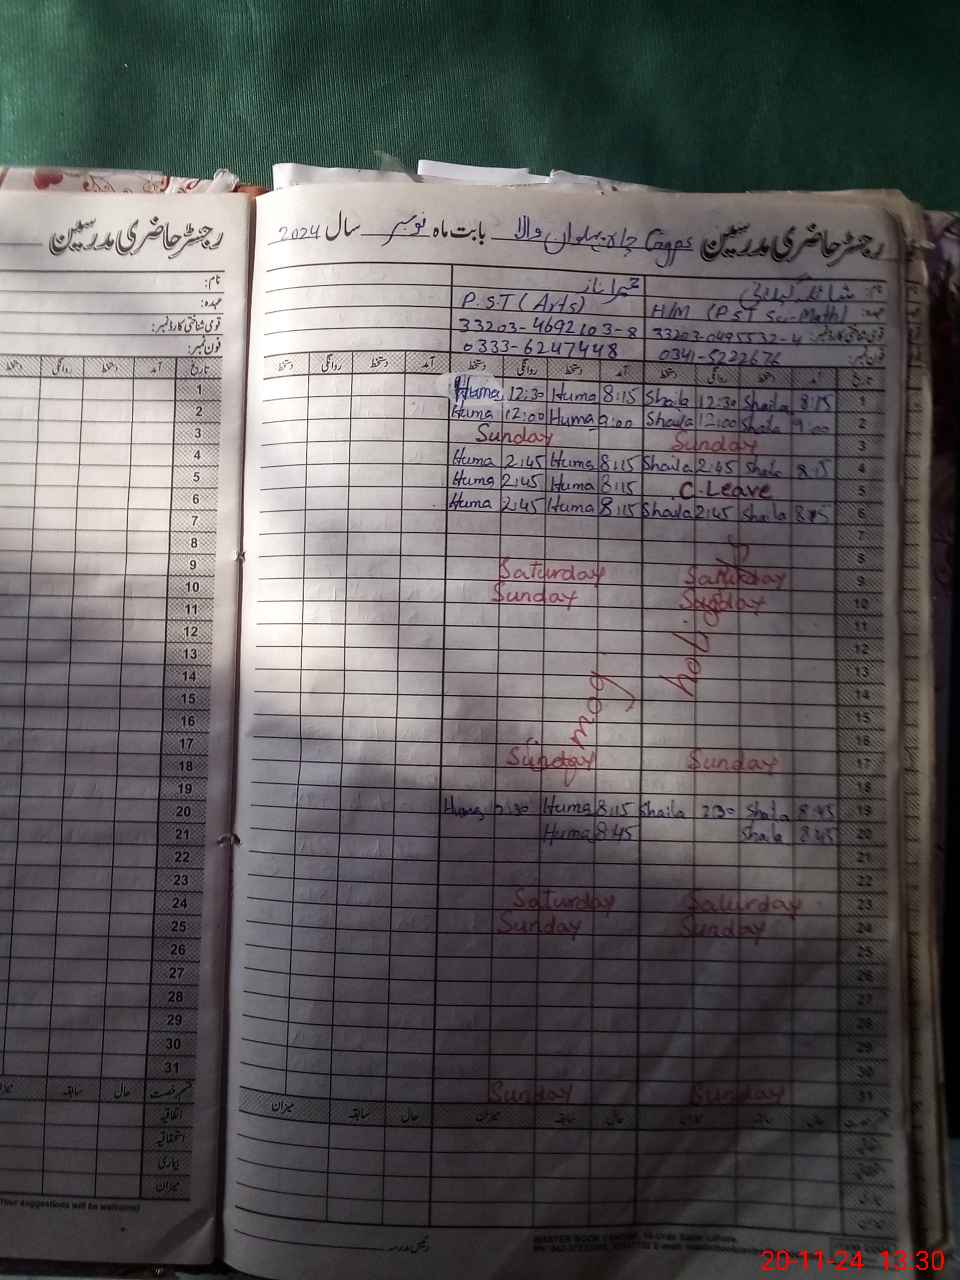 رجسٹر حاضری مدرسین
نام:
عہدہ:
قومی شناختی کارڈ نمبر:
فون نمبر:
رجسٹر حاضری مدرسین Cggps چاہ پہلوان والا بابت ماہ نومبر سال 2024
P.S.T (Arts) H/M (PST Sci-Math)
33203-4692103-8 33203-0495532-4
0333-6247448 0341-5222676
تاریخ آمد دستخط روانگی دستخط
1 Huma 12:30 Huma 8:15 Shaila 12:30 Shaila 8:15 1
2 Huma 12:00 Huma 9:00 Shaila 12:00 Shaila 9:00 2
3 Sunday Sunday 3
4 Huma 2:45 Huma 8:15 Shaila 2:45 Shaila 8:15 4
5 Huma 2:45 Huma 8:15 C.Leave 5
6 Huma 2:45 Huma 8:15 Shaila 2:45 Shaila 8:15 6
7 7
8 8
9 Saturday Saturday 9
10 Sunday Sunday 10
11 11
12 12
13 13
14 14
15 15
16 16
17 Sunday Sunday 17
18 18
19 Huma 2:30 Huma 8:15 Shaila 2:30 Shaila 8:45 19
20 Huma 8:45 Shaila 8:45 20
21 21
22 22
23 Saturday Saturday 23
24 Sunday Sunday 24
25 25
26 26
27 27
28 28
29 29
30 30
31 Sunday Sunday 31
smog holiday
قسم رخصت حال سابقہ میزان
اتفاقیہ
استحقاقیہ
بیماری
میزان
Your suggestions will be welcomed
رئیس مدرسہ
MASTER BOOK CENTRE
20-11-24 13:30